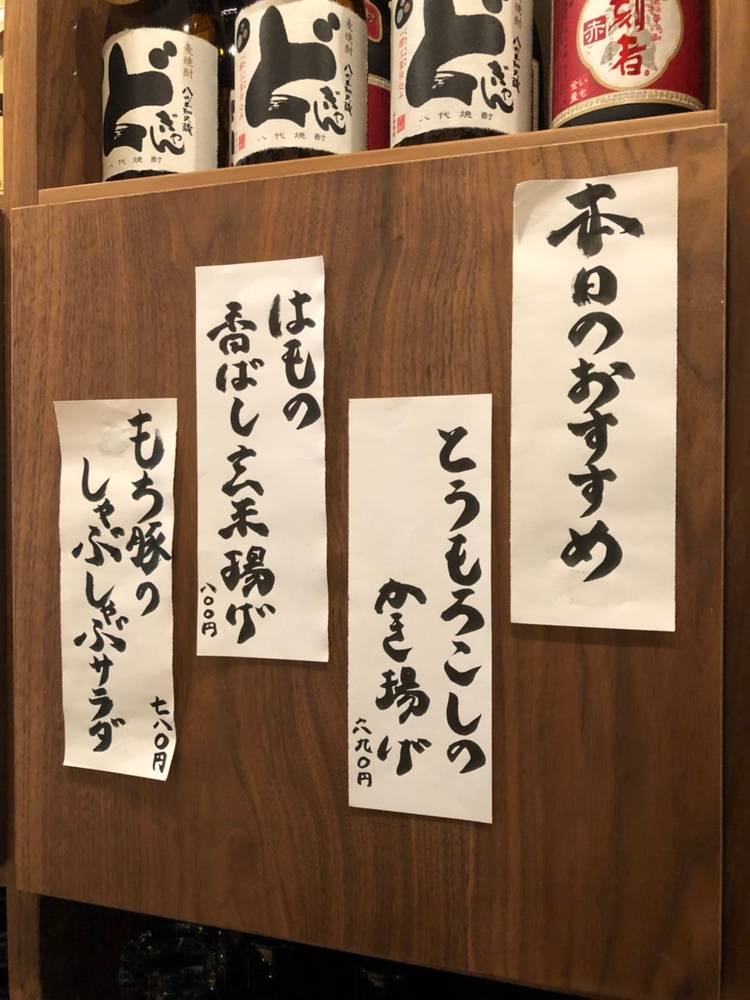 本日のおすすめ
とうもろこしの
かき揚げ
六九〇円
はもの
香ばし玄米揚げ
八〇〇円
もち豚の
しゃぶしゃぶサラダ
七八〇円
麦焼酎
どぎゃん
八代焼酎
麦焼酎
どぎゃん
八代焼酎
どぎゃん
八代焼酎
刻者
赤